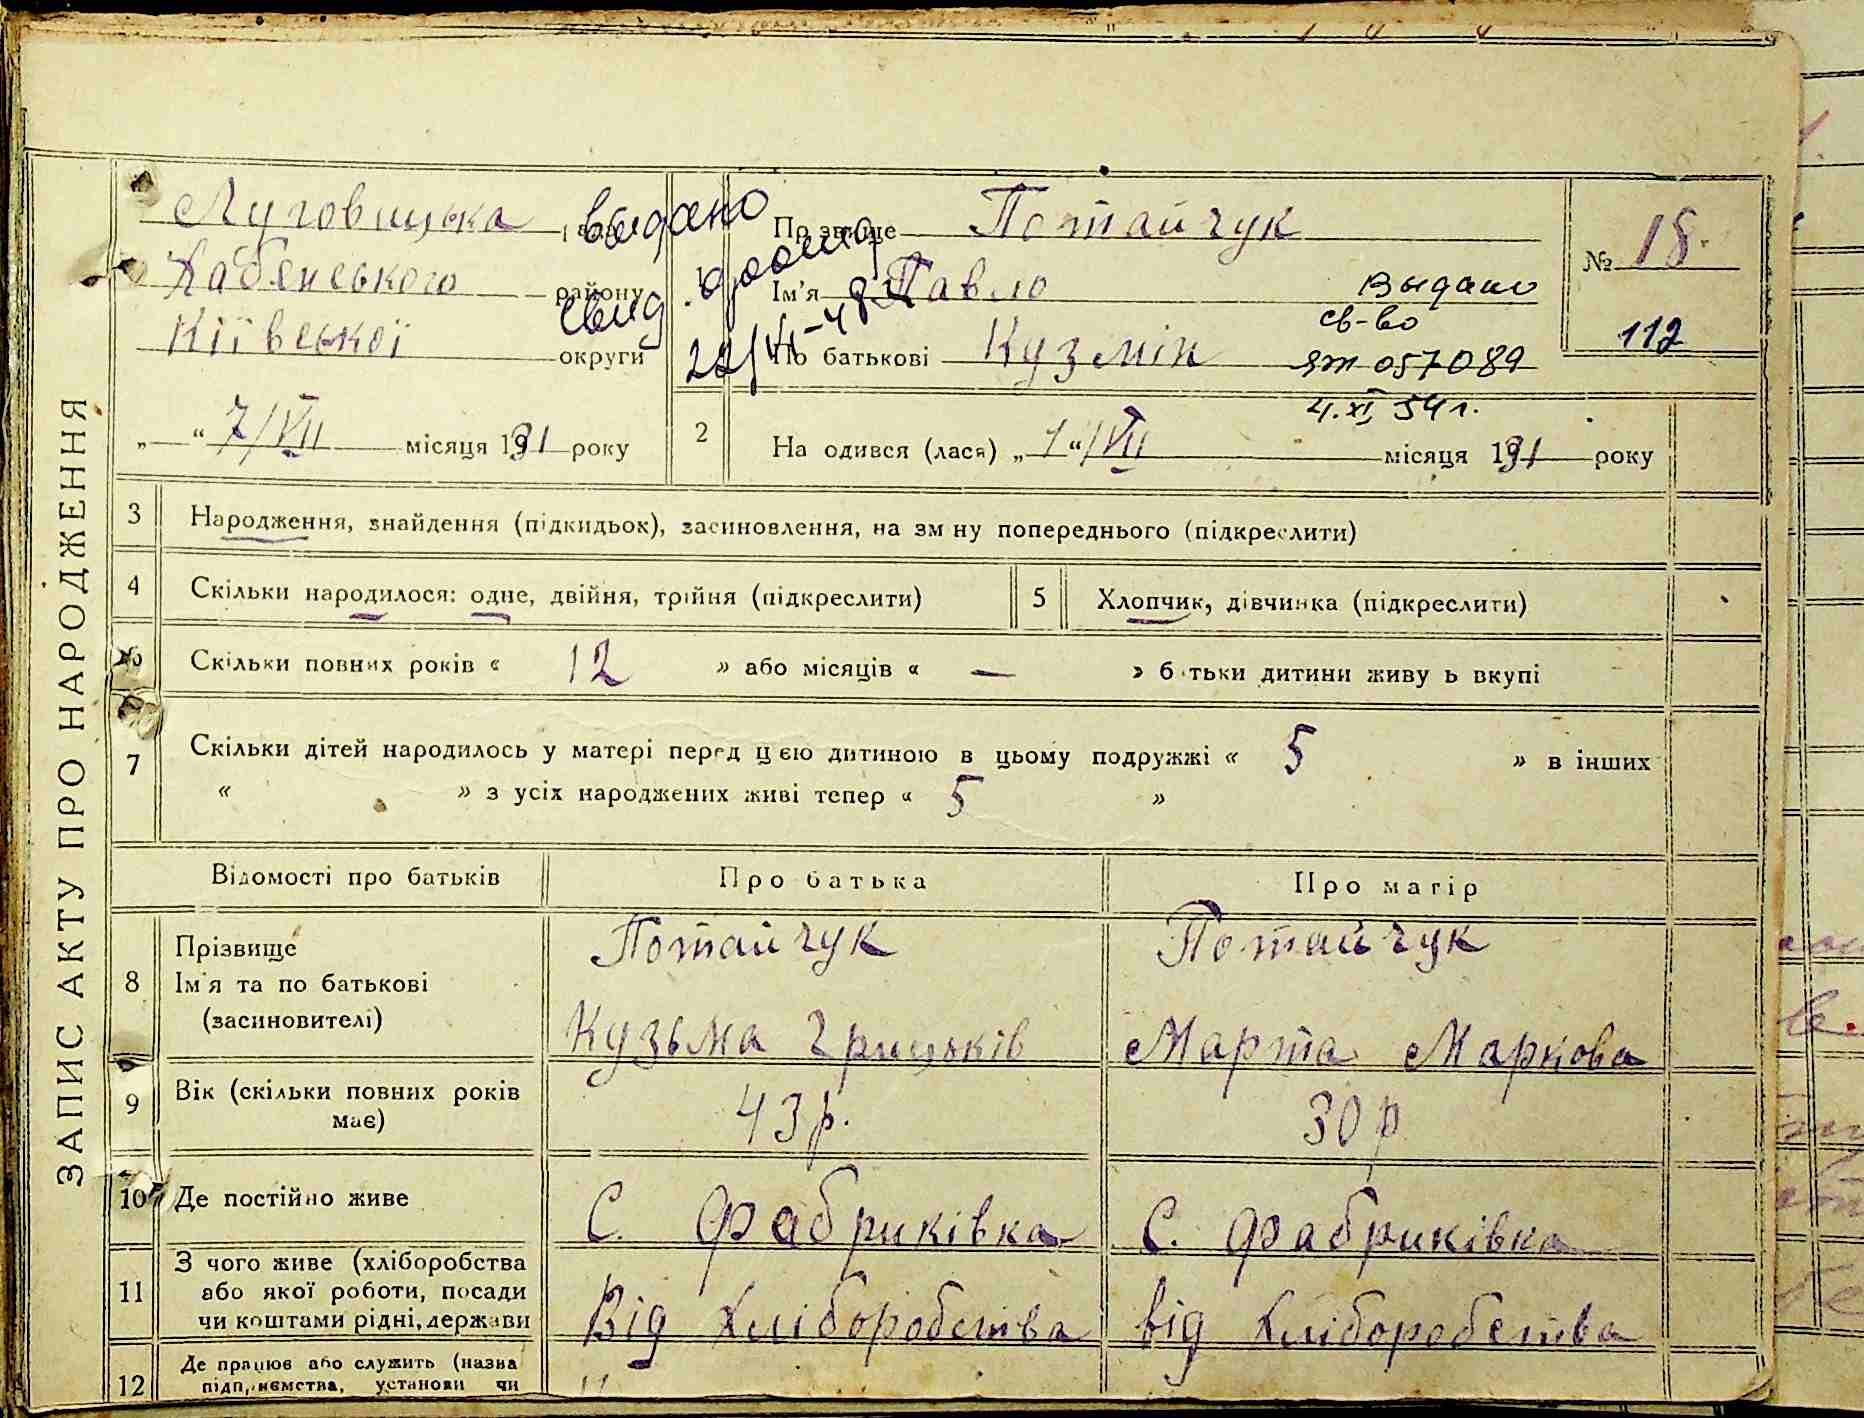 ЗАПИС АКТУ ПРО НАРОДЖЕННЯ
Луговицька
Хабенського району
Київської округи
„ “ 7/VII місяця 1931 року
выдано
свид.
22/VI-48
Прізвище Потайчук
Ім'я Павло
По батькові Кузмін
№ 18
112
Выдано
св-во
ЯТ 057089
4.XI 54 г.
2 На одився (лася) „ 1 “ /VII місяця 1931 року
3 Народження, знайдення (підкидьок), засиновлення, на зм ну попереднього (підкреслити)
4 Скільки народилося: одне, двійня, трійня (підкреслити)
5 Хлопчик, дівчинка (підкреслити)
6 Скільки повних років « 12 » або місяців « — » б тьки дитини живу ь вкупі
7 Скільки дітей народилось у матері перед цією дитиною в цьому подружжі « 5 » в інших
« » з усіх народжених живі тепер « 5 »
Відомості про батьків Про батька Про матір
8 Прізвище Потайчук Потайчук
Ім'я та по батькові
(засиновителі) Кузьма Грицьків Марта Маркова
9 Вік (скільки повних років 43 р. 30 р
має)
10 Де постійно живе С. Фабриківка С. Фабриківка
11 З чого живе (хліборобства
або якої роботи, посади
чи коштами рідні, держави Від хліборобства від хліборобства
12 Де працює або служить (назва
підприємства, установи чи